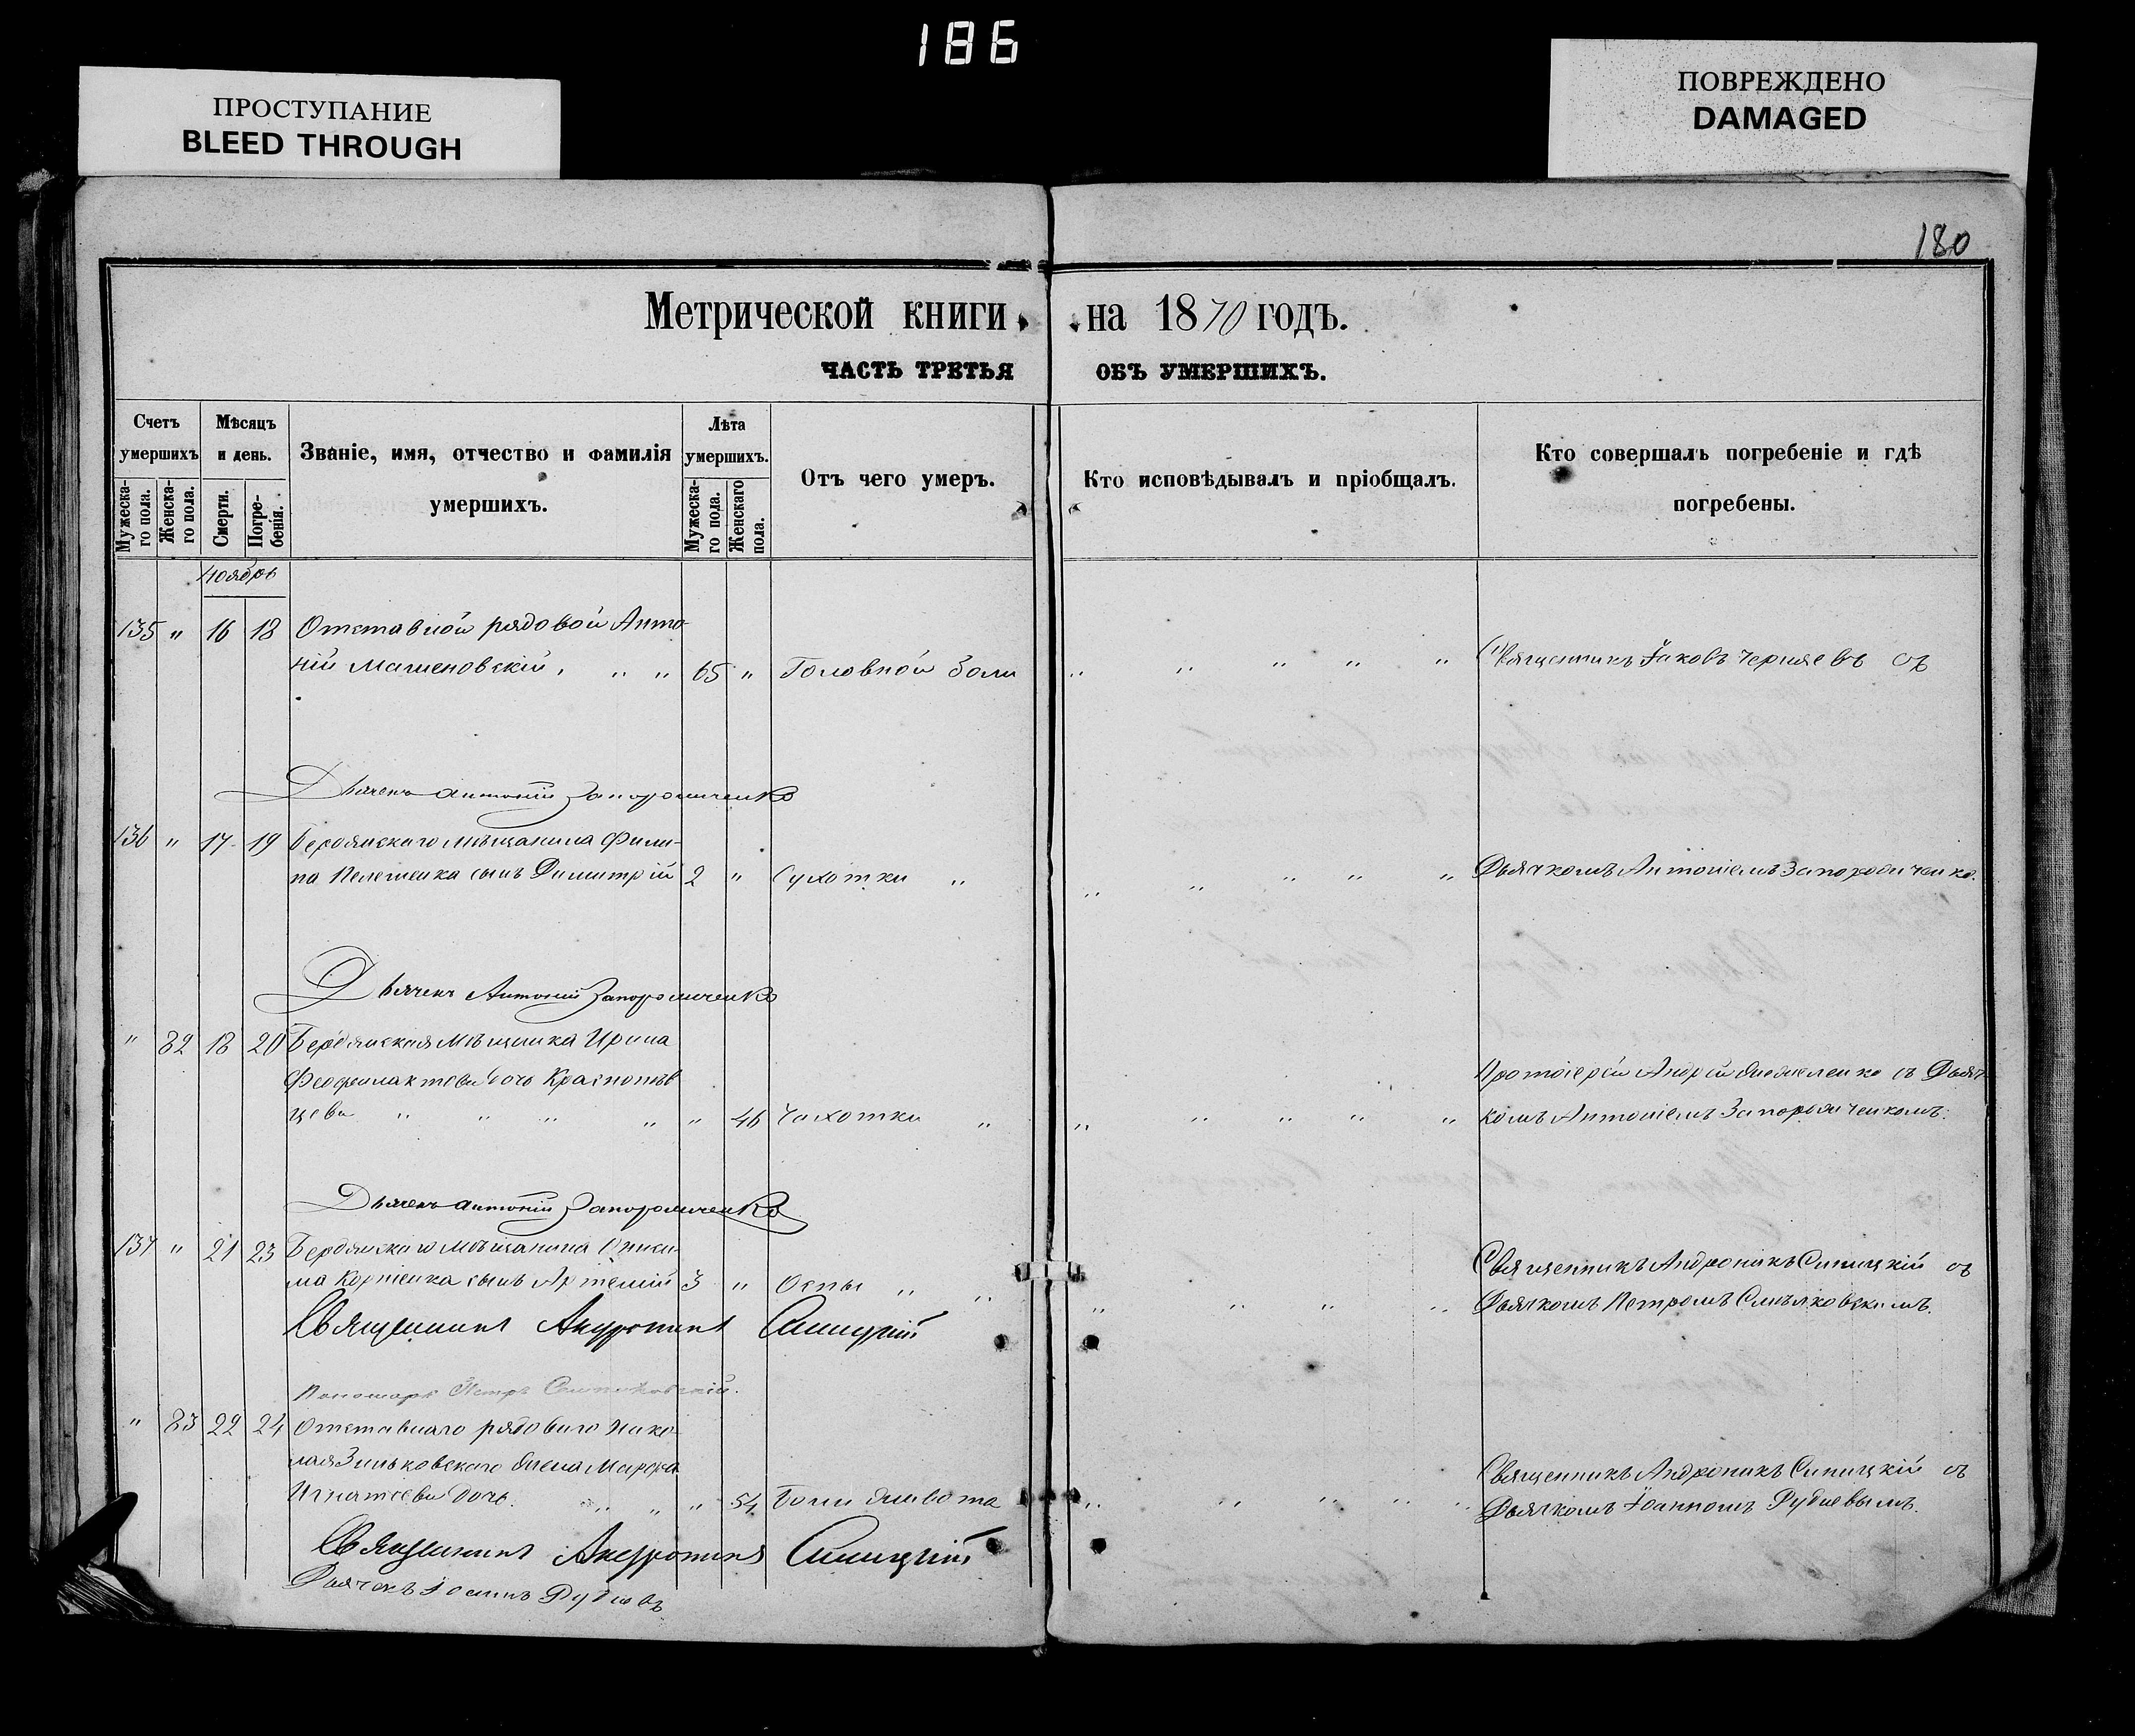 186
ПРОСТУПАНИЕ
BLEED THROUGH
ПОВРЕЖДЕНО
DAMAGED
180
Метрической книги на 1870 годъ.
ЧАСТЬ ТРЕТЬЯ ОБЪ УМЕРШИХЪ.
Счетъ умершихъ
Мужеска-го пола.
Женска-го пола.
Мѣсяцъ и день.
Смерти.
Погре-бенія.
Званіе, имя, отчество и фамилія умершихъ.
Лѣта умершихъ.
Мужеска-го пола.
Женскаго пола.
Отъ чего умеръ.
Кто исповѣдывалъ и пріобщалъ.
Кто совершалъ погребеніе и гдѣ погребены.
Ноябрь
135 " 16 18 Отставной рядовой Анто-
ній Машеновскій, " " 65 " Головной боли " " " " " Священникъ Іаковъ Черняевъ съ
Дьячекъ Антоній Запорожченко
136 " 17 19 Бердянскаго мѣщанина Фили-
па Пелешенка сынъ Димитрій 2 " Сухотки " " " " " " Дьячкомъ Антоніемъ Запорожченко.
Дьячекъ Антоній Запорожченко
" 82 18 20 Бердянская мѣщанка Ирина
Феофилактова дочь
цева " " " " " 46 Чахотки " " " " " "
Протоіерей Андрей съ Дьяч-
комъ Антоніемъ Запорожченкомъ.
Дьячекъ Антоній Запорожченко
137 " 21 23 Бердянскаго мѣщанина Ониси-
ма Корніенка сынъ Артемій 3 " Оспы " " " " " "
Священникъ Андроникъ Синицкій съ
Дьячкомъ Петромъ
Священникъ Андроникъ Синицкій
Пономарь Петръ
" 83 22 24 Отставнаго рядоваго Нико-
лая Зиньковскаго жена Марфа
Игнатьева дочь. " " " 54 Боли живота " " " " "
Священникъ Андроникъ Синицкій съ
Дьячкомъ Іоанномъ Рубцевымъ.
Священникъ Андроникъ Синицкій
Дьячекъ Іоаннъ Рубцовъ